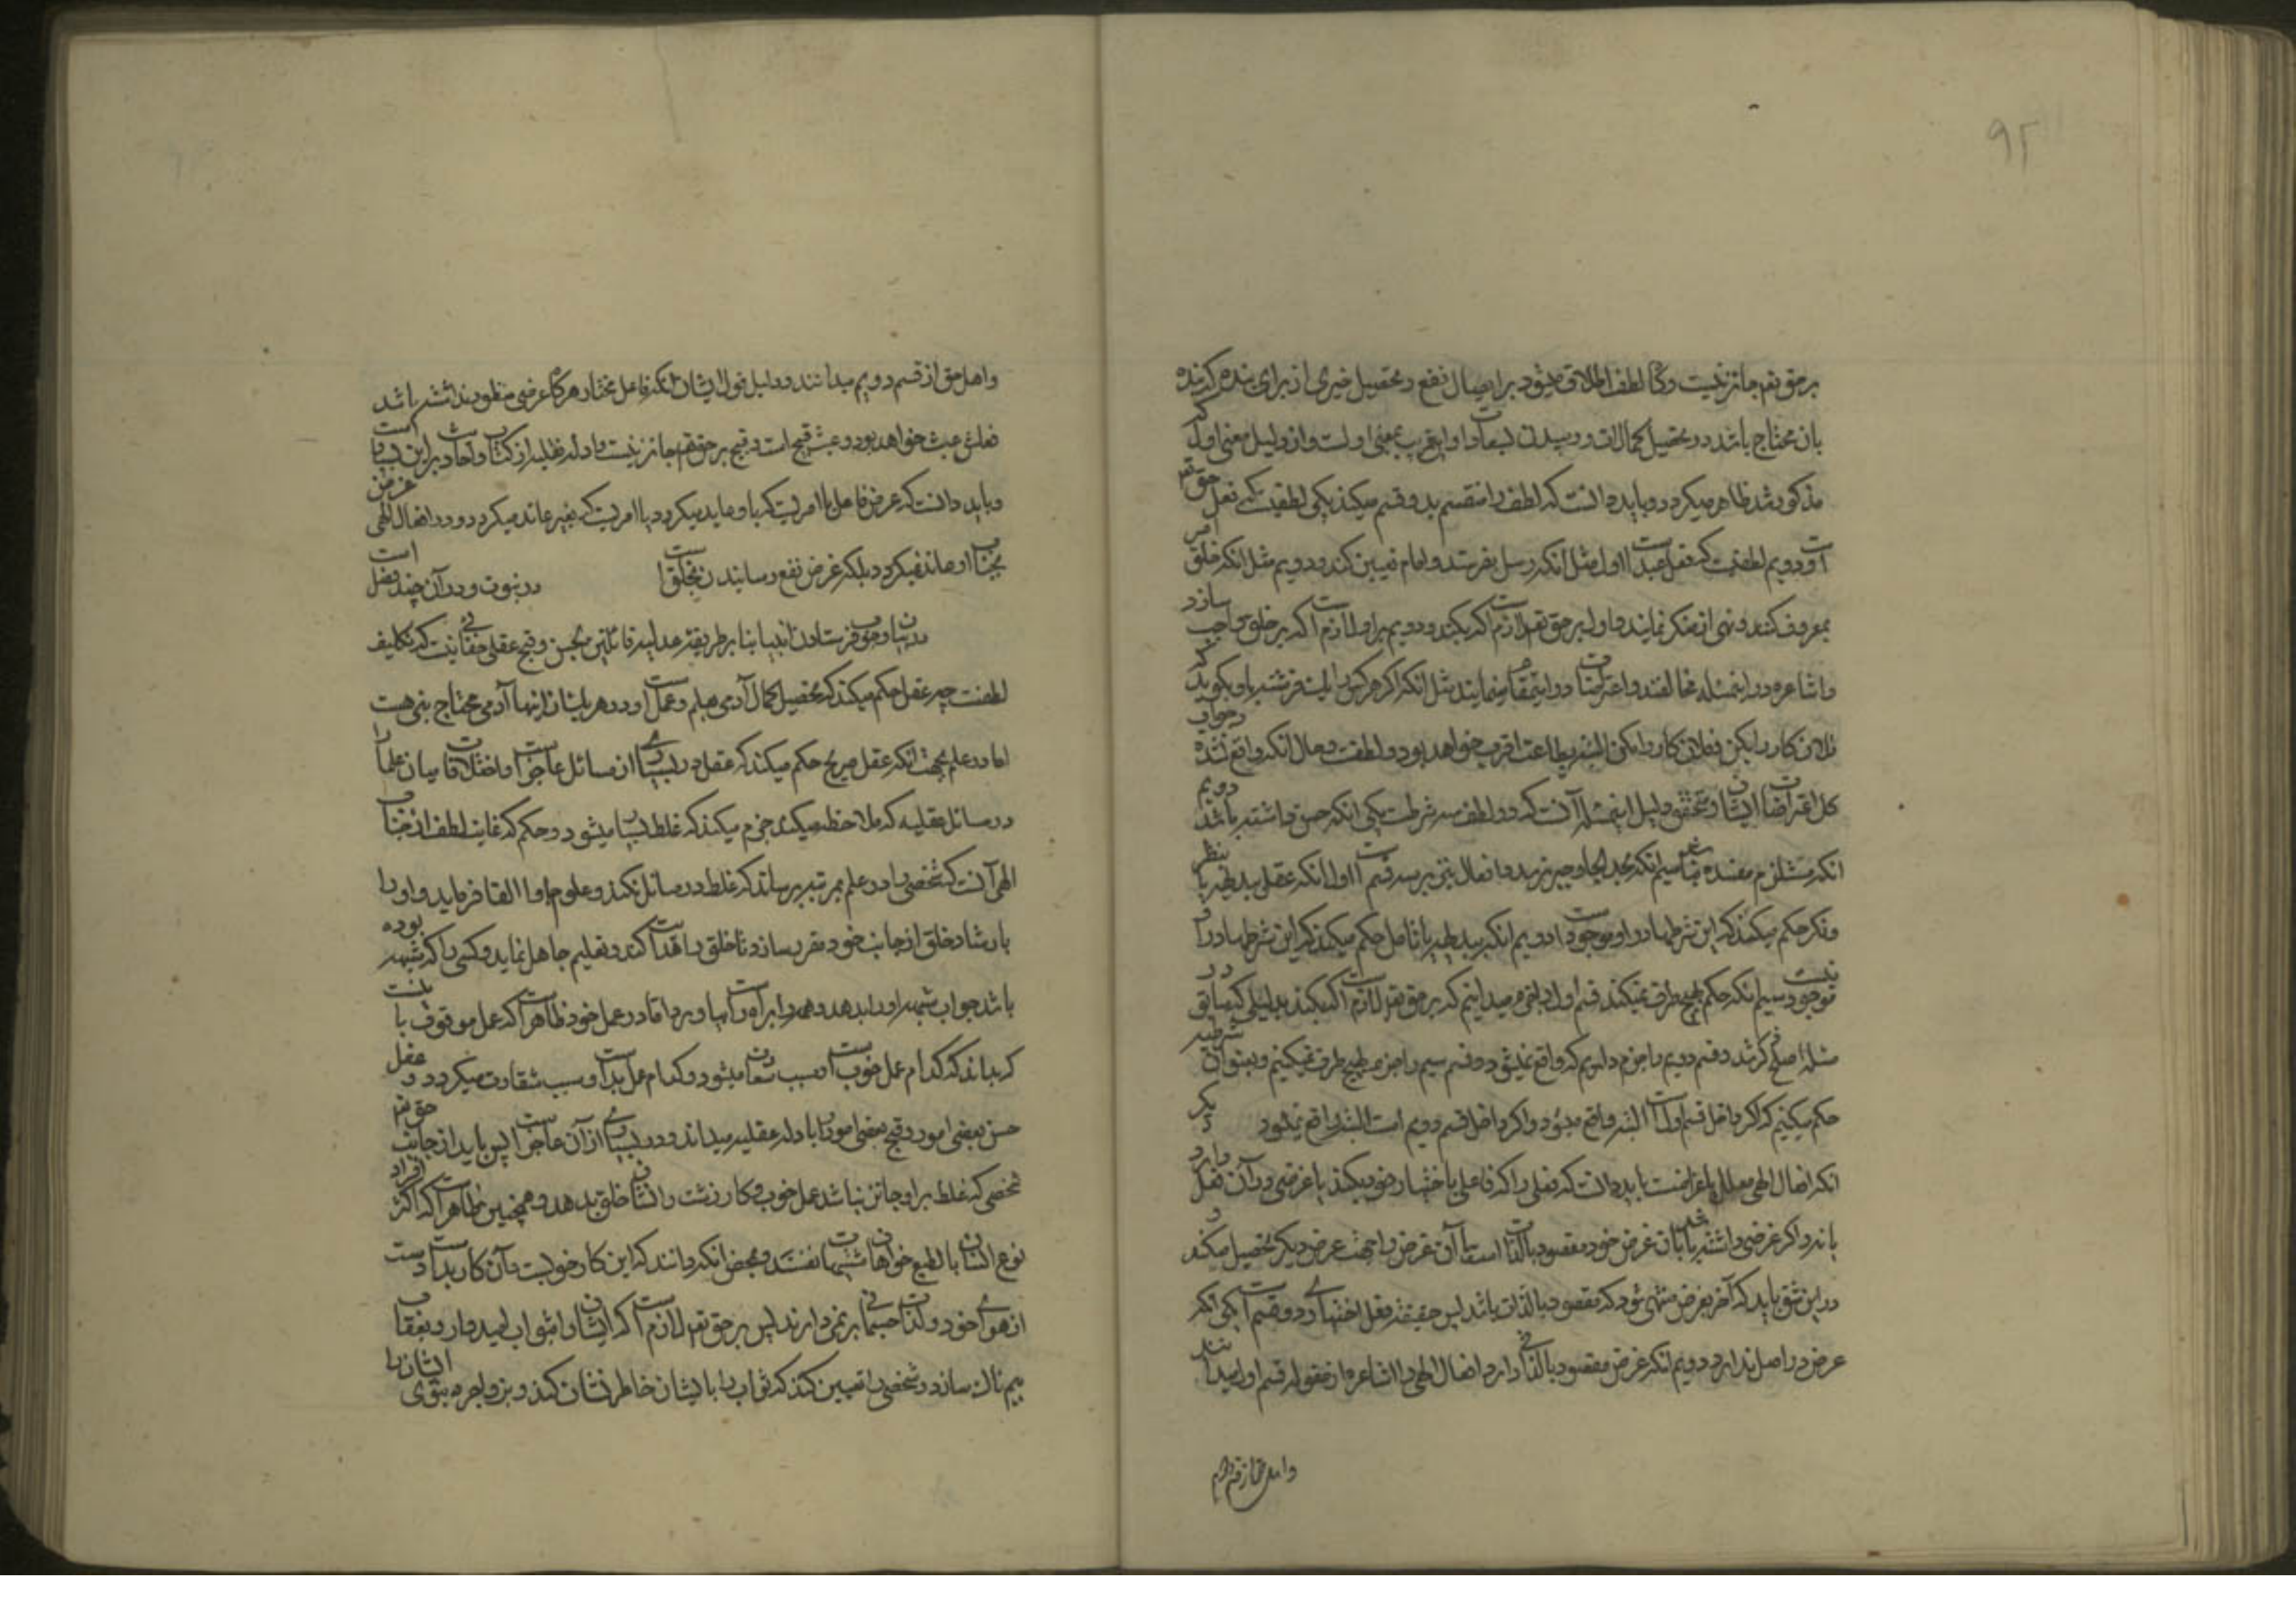 ۹۲
بر حق تعم جایز نیست و گاه لطف اطلاق میشود بر ایصال نفع و تحصیل خیری از برای بنده که بنده
بان محتاج باشد در تحصیل کمالات و رسیدن بسعادات و این قریب بمعنی اولست و از دلیل معنی اول که
مذکور شد ظاهر میکردد و باید دانست که لطف را منقسم بدو قسم میکنند یکی لطفیست که فعل حق تعم
است و دویم لطفیست که فعل عبد است اول مثل انکه رسل بفرستد و امام تعیین کند و دویم مثل انکه خلق امر
بمعروف کنند و نهی از منکر نمایند و اول بر حق تعم لازم است که بکند و دویم بر او لازم است که بر خلق واجب سازد
و اشاعره در اینمسئله مخالفند و اعتراضات در اینمقام مینمایند مثل انکه اگر هر کس را فرشته با او بگوید که
فلان کار را بکن و فلان کار را مکن البته بطاعت اقرب خواهد بود و لطفست و حال انکه واقع نشده و جواب
کل اعتراضات ایشان و تحقیق دلیل اینمسئله آنست که در لطف سه شرطست یکی انکه حسن داشته باشد دویم
انکه مستلزم مفسده نباشد سیم انکه بحد الجاء و جبر نرسد و افعال نیز بر سه قسم است اول انکه عقل ببدیهه یا بنظر
و فکر حکم میکند که این شرطها در او موجود است دویم انکه ببدیهه یا تامل حکم میکند که این شرطها در او
موجود نیست سیم انکه حکم بهیچ طرف نمیکند قسم اول را بلغو میدانیم که بر حق تعم لازم است که بکند بدلیلی که سابق در
مسئله اصلح گذشت و قسم دویم را جزم داریم که واقع نمیشود و قسم سیم را جزم بهیچ طرف نمیکنیم و بعنوان شرطیه
حکم میکنیم که اگر داخل قسم اول است البته واقع میشود و اگر داخل قسم دویم است البته واقع نمیشود دیگر
انکه افعال الهی معلل باغراضست باید دانست که فعلی را که فاعلی باختیار خود میکند یا غرضی در آن فعل دارد
یا ندارد اگر غرضی داشته باشد یا آن غرض خود مقصود بالذات است یا آن غرض را جهت غرض دیگر تحصیل میکند و
در این شق باید که آخر بغرضی منتهی شود که مقصود بالذات باشد پس حقیقة فعل اختیاری دو قسم است یکی انکه
غرض در اصل ندارد دویم انکه غرض مقصود بالذات دارد افعال الهی را اشاعره از مقوله قسم اول میدانند
و اهل حق از قسم دویم
و اهل حق از قسم دویم میدانند و دلیل قول ایشان انکه فاعل مختار هر گاه غرضی منظور نداشته باشد
فعلش عبث خواهد بود و عبث قبیح است و قبیح بر حق تعم جایز نیست و ادله نقلیه از کتاب و احادیث بر این بسیار است
و باید دانست که غرض فاعل یا امریست که باو عاید میکردد یا امریست که بغیر عاید میکردد و در افعال الهی غرض
بجناب او عاید نمیکردد بلکه غرض نفع رسانیدن بخلق است در نبوت و در آن چند فصل است
در بیان وجوب فرستادن انبیا بنا بر طریقهٔ عدلیه قائلین بحسن و قبح عقلی خفائی نیست که تکلیف
لطفست چه عقل حکم میکند که تحصیل کمال آدمی بعلم و عمل است و در هر یک از اینها آدمی محتاج بنبی هست
اما در علم بجهت انکه عقل صریح حکم میکند که عقل در بسیاری از مسائل عاجز است و اختلافات میان علما را
در مسائل عقلیه که ملاحظه میکند جزم میکند که غلط بسیار میشود و حکم که غایت لطف از جناب
الهی آنست که شخصی را در علم بمرتبهٔ برساند که غلط در مسائل نکند و علوم باو القا فرماید و او را
بارشاد خلق از جانب خود مقرر سازد تا خلق را هدایت کند و تعلیم جاهل نماید و کسی را که شبهه بوده
باشد جواب شبهه او را بدهد و همه را براه راست بیاورد اما در عمل خود ظاهر است که عمل موقوف بانست
که بداند که کدام عمل خوب است و سبب سعادت میشود و کدام عمل بد است و سبب شقاوت میکردد و عقل
حسن بعضی امور و قبح بعضی امور را بادله عقلیه میداند و در بسیاری از آن عاجز است پس باید از جانب حق تعم
شخصی که غلط بر او جایز نباشد عمل خوب و کار زشت را نشان خلق بدهد و همچنین ظاهر است که اکثر افراد
نوع انسان بالطبع خواهان مشتهیات نفسند و بمحض انکه دانند که این کار خوبست و آن کار بد است دست
از هوای خود و لذات جسمانی بر نمیدارند پس بر حق تعم لازم است که ایشان را بثواب امیدوار و بعقاب
بیم ناک سازد و شخصی را تعیین کند که ثواب را بایشان خاطر نشان کند و بزواجر دنیوی ایشان را